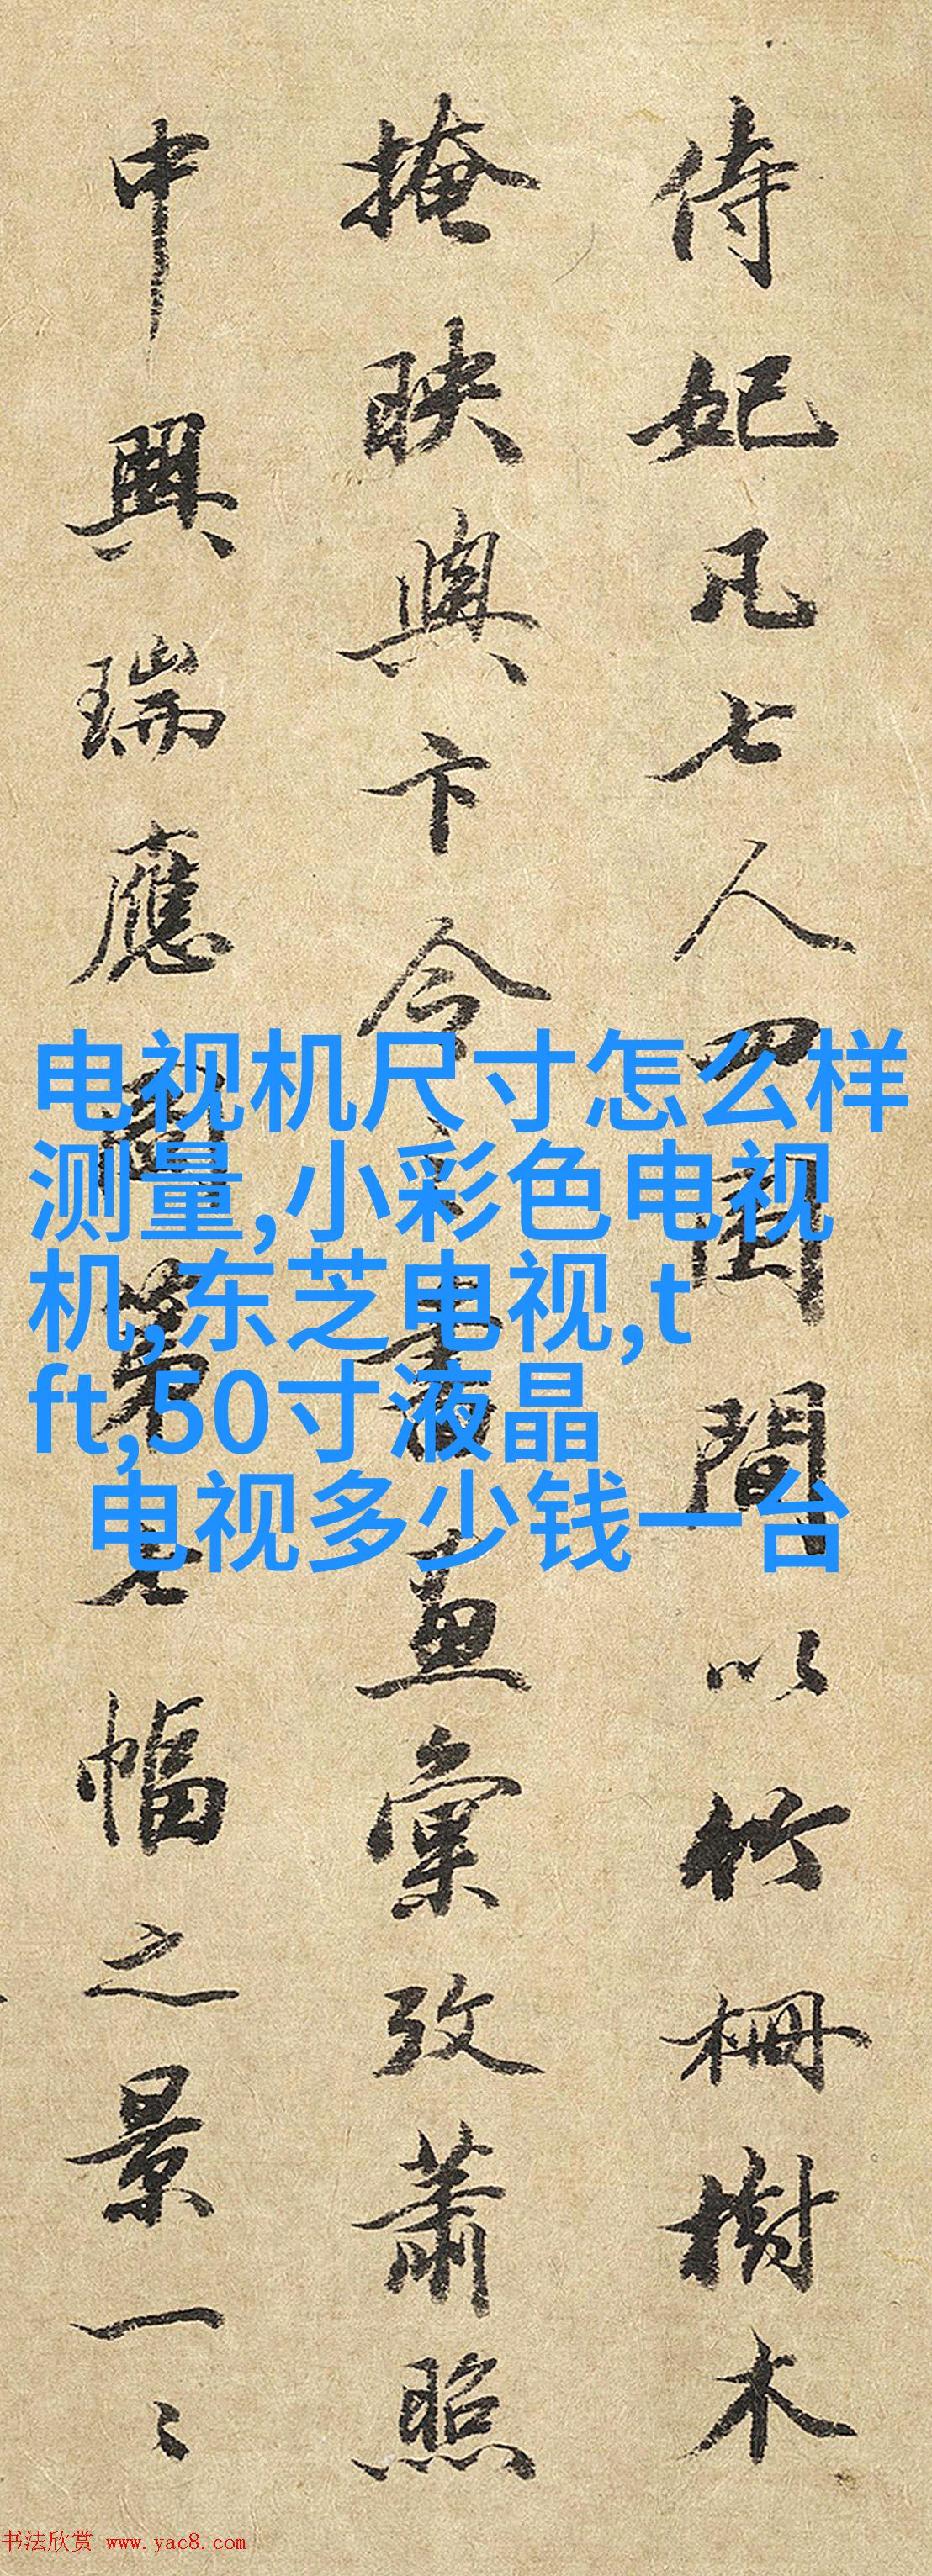 侍妃凡七人四圉間以竹柵樹木
掩映與卞令之書畫彙攷蕭照
中興瑞應圖第七幅之景一〻
电视机尺寸怎么样
测量,小彩色电视
机,东芝电视,t
ft,50寸液晶
电视多少钱一台
书法欣赏 www.yac8.com